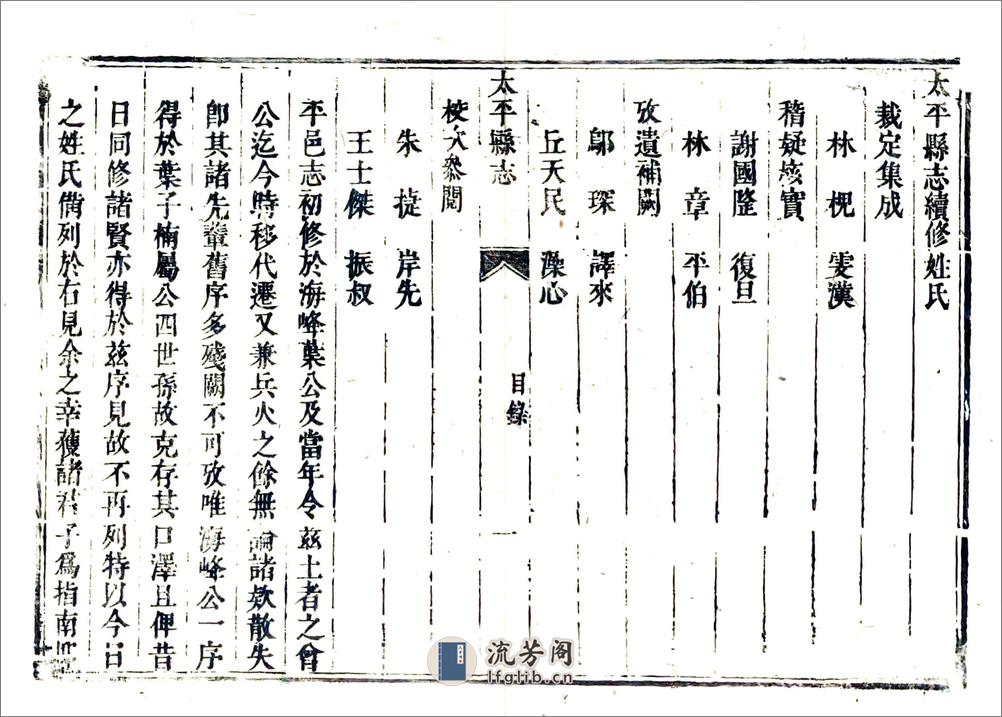 太平縣志續修姓氏
裁定集成
林　棿　雯漢
稽疑核實
謝國墜　復旦
林　章　平伯
攷遺補闕
鄔　琛　譯來
丘天民　澡心
太平縣志
目錄
一
校文叅閱
朱　㨗　岸先
王士傑　振叔
平邑志初修於海峰葉公及當年令茲土者之曾
公迄今時移代遷又兼兵火之餘無論諸欵散失
卽其諸先輩舊序多殘闕不可攷唯海峰公一序
得於葉子楠屬公四世孫故克存其口澤且俾昔
日同修諸賢亦得於茲序見故不再列特以今日
之姓氏備列於右見余之幸獲諸君子爲指南
流芳阁
lfglib.cn